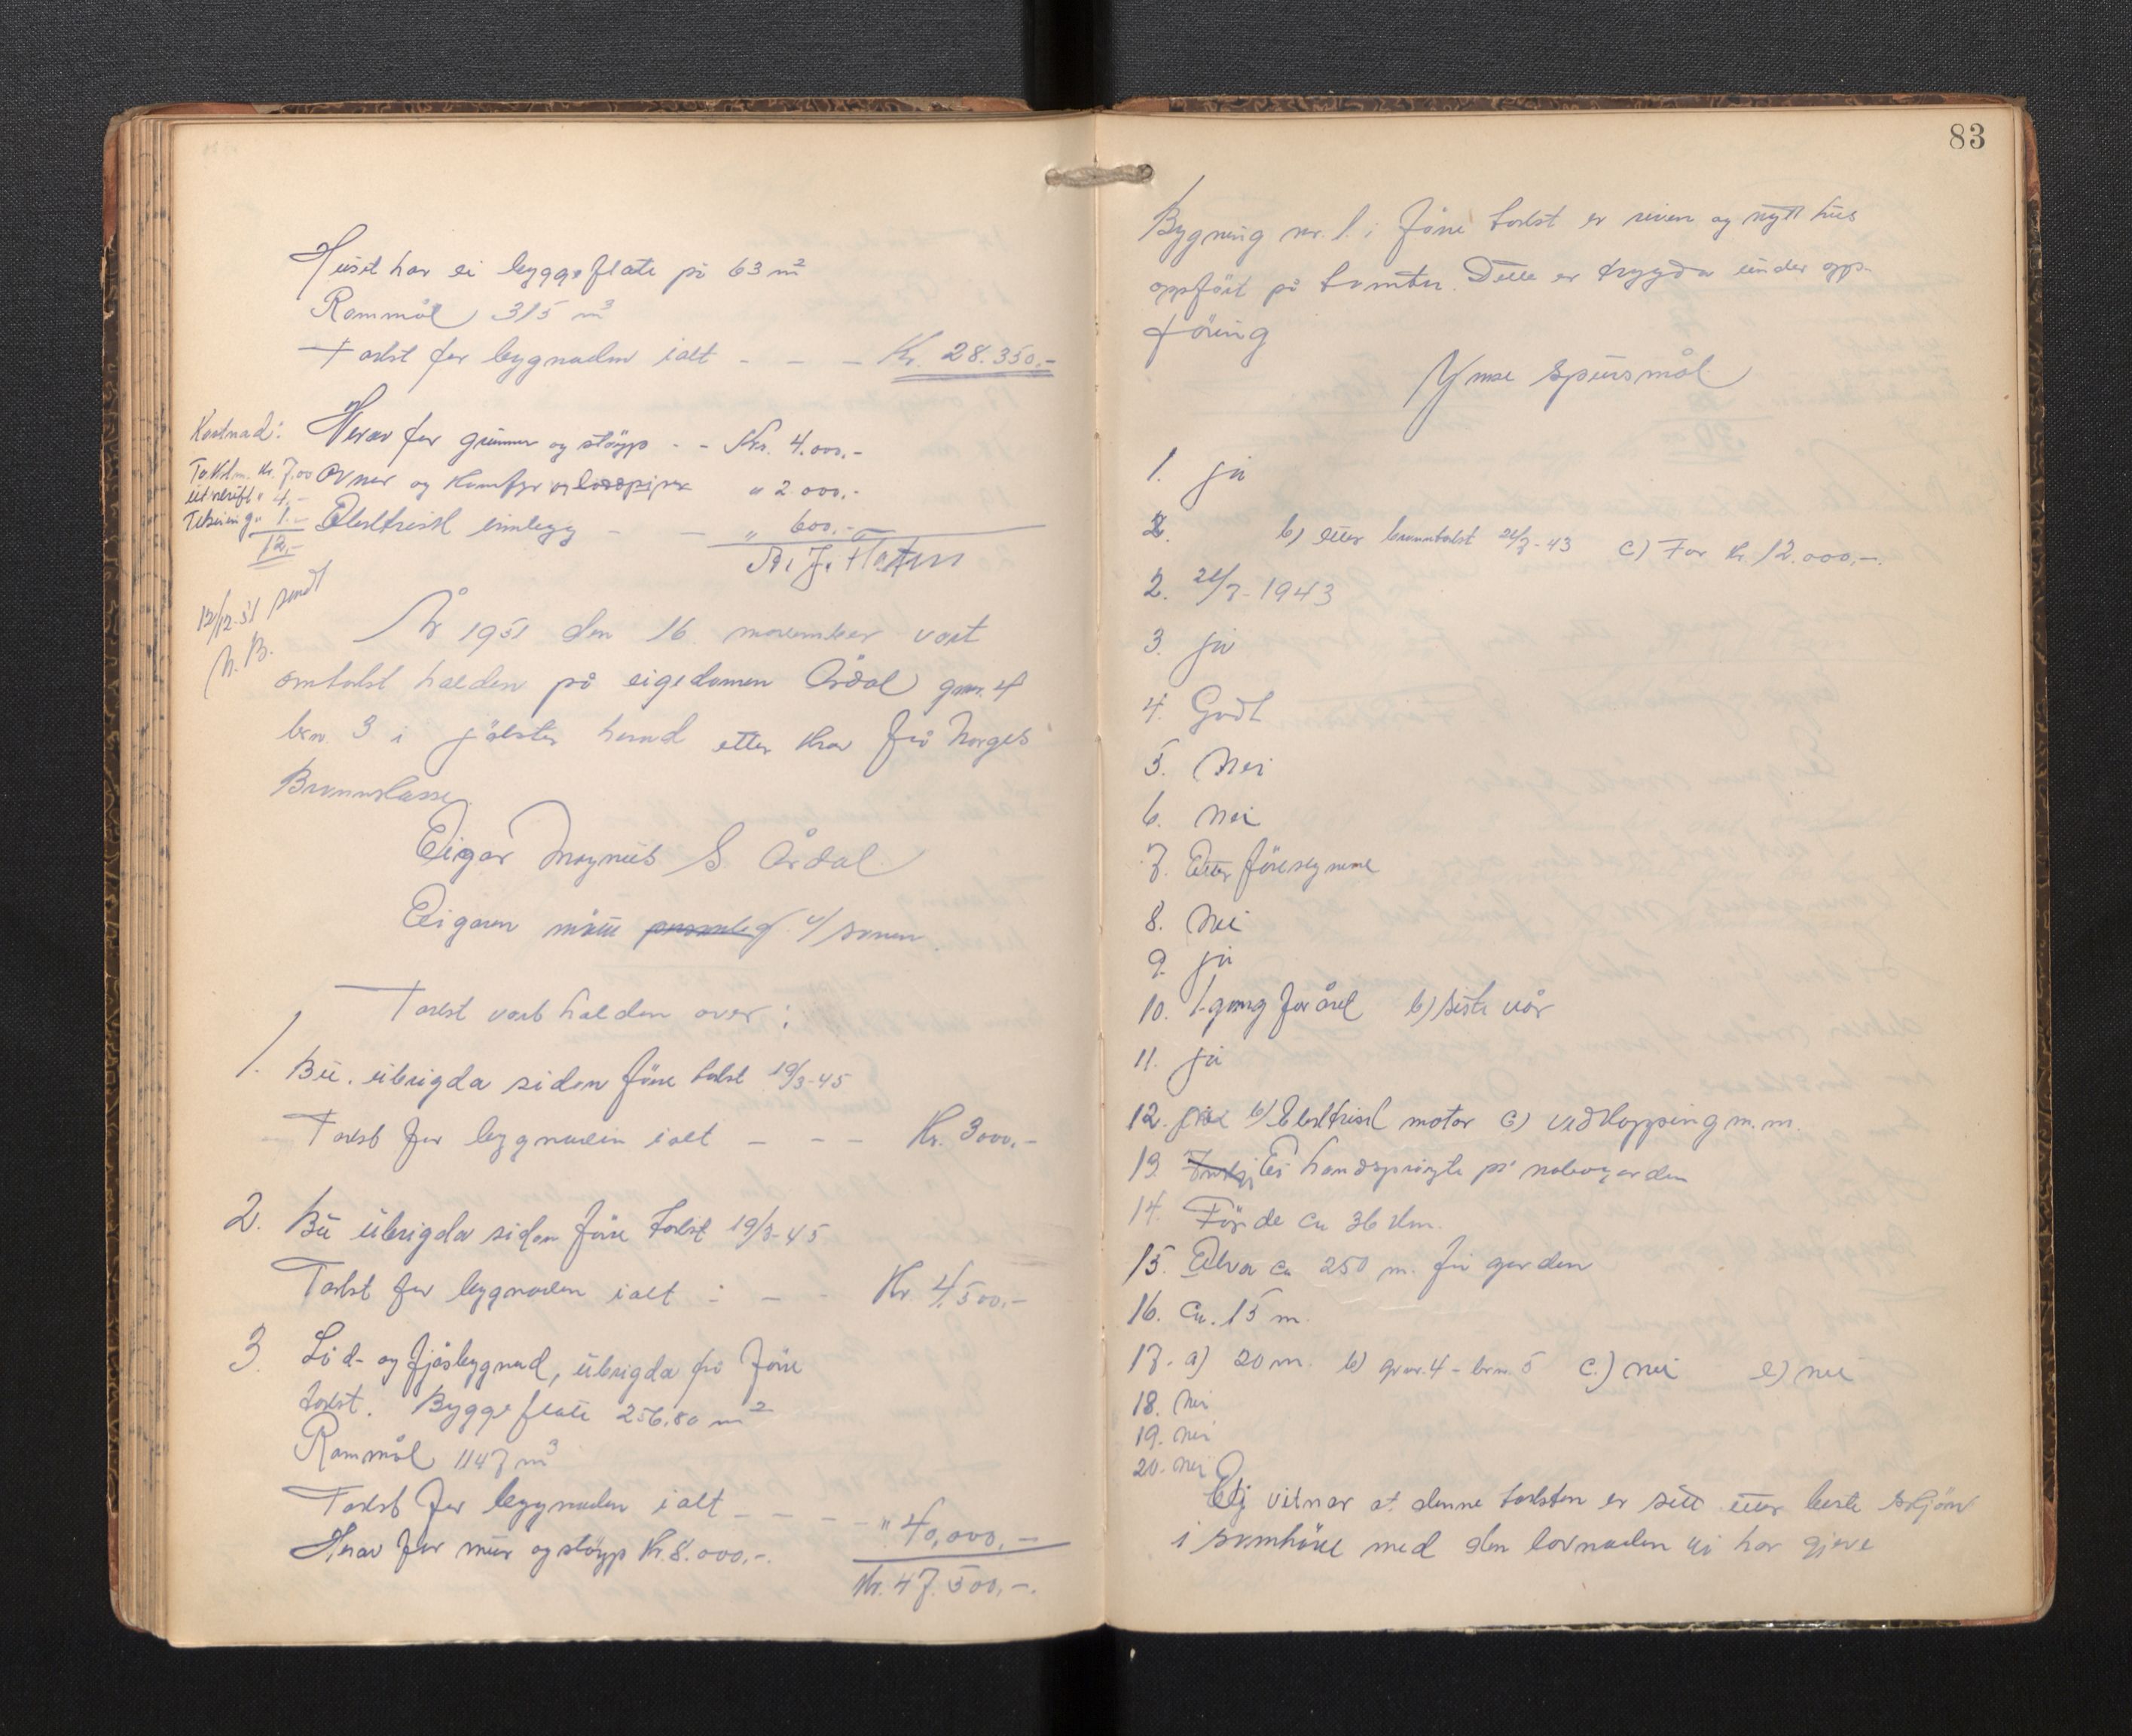 Huset har ei byggeflate på 63 m²
Rommål 315 m³
Takst for bygnaden ialt - - - Kr. 28.350,-
Kostnad:
Herav for grunnmur og støyp - - Kr. 4.000,-
Takstm. kr. 7,00
Ovner og komfyr og " 2.000,-
utskrift " 4,-
Teikning " 1.-
12,-
Elektrisk innlegg - - " 600,-
A. J. Flaten
12/12-51 sendt
N.B.
År 1951 den 16 november vart
omtakst halden på eigedomen Årdal gnr. 4
brn. 3 i Jølster herad etter krav frå Norges
Brannkasse.
Eigar Magnus S. Årdal.
Eigaren møtte personleg v/sonen.
Takst vart halden over:
1. Bu. ubrigda siden före takst 19/3-45
Takst for bygnaden ialt - - - Kr. 3000,-
2. Bu ubrigda siden före takst 19/3-45
Takst for bygnaden ialt - - - Kr 4.500,-
3. Lød- og fjösbygnad, ubrigda frå före
takst. Byggeflate 256,80 m²
Rommål 1147 m³
Takst for bygnaden ialt - - - - " 40,000,-
Herav for mur og støyp Kr. 8.000,-.
Kr. 47.500,-.
83
Bygning nr. 1. i före takst er riven og nytt hus
oppfört på tomten. Dette er trygda under opp-
föring
Ymse spursmål
1. ja
2. b) etter branntakst 21/7-43 c) For kr. 12.000,-.
2. 21/7-1943
3. ja
4. Godt
5. Nei
6. Nei
7. Etter föresegnene
8. Nei
9. ja
10. 1-gang for året b) siste vår
11. ja
12. b) Elektrisk motor c) vedkapping m.m.
13. Ei handspröyte på nabogarden
14. Förde ca 36 km.
15. Elva ca 250 m. frå garden
16. Ca. 15 m.
17. a) 20 m. b) gnr. 4 - brn. 5 c.) nei e) nei
18. Nei
19. Nei
20. Nei
Eg vitnar at denne taksten er sett etter beste skjön
i samhöve med den lovnaden vi har gjeve